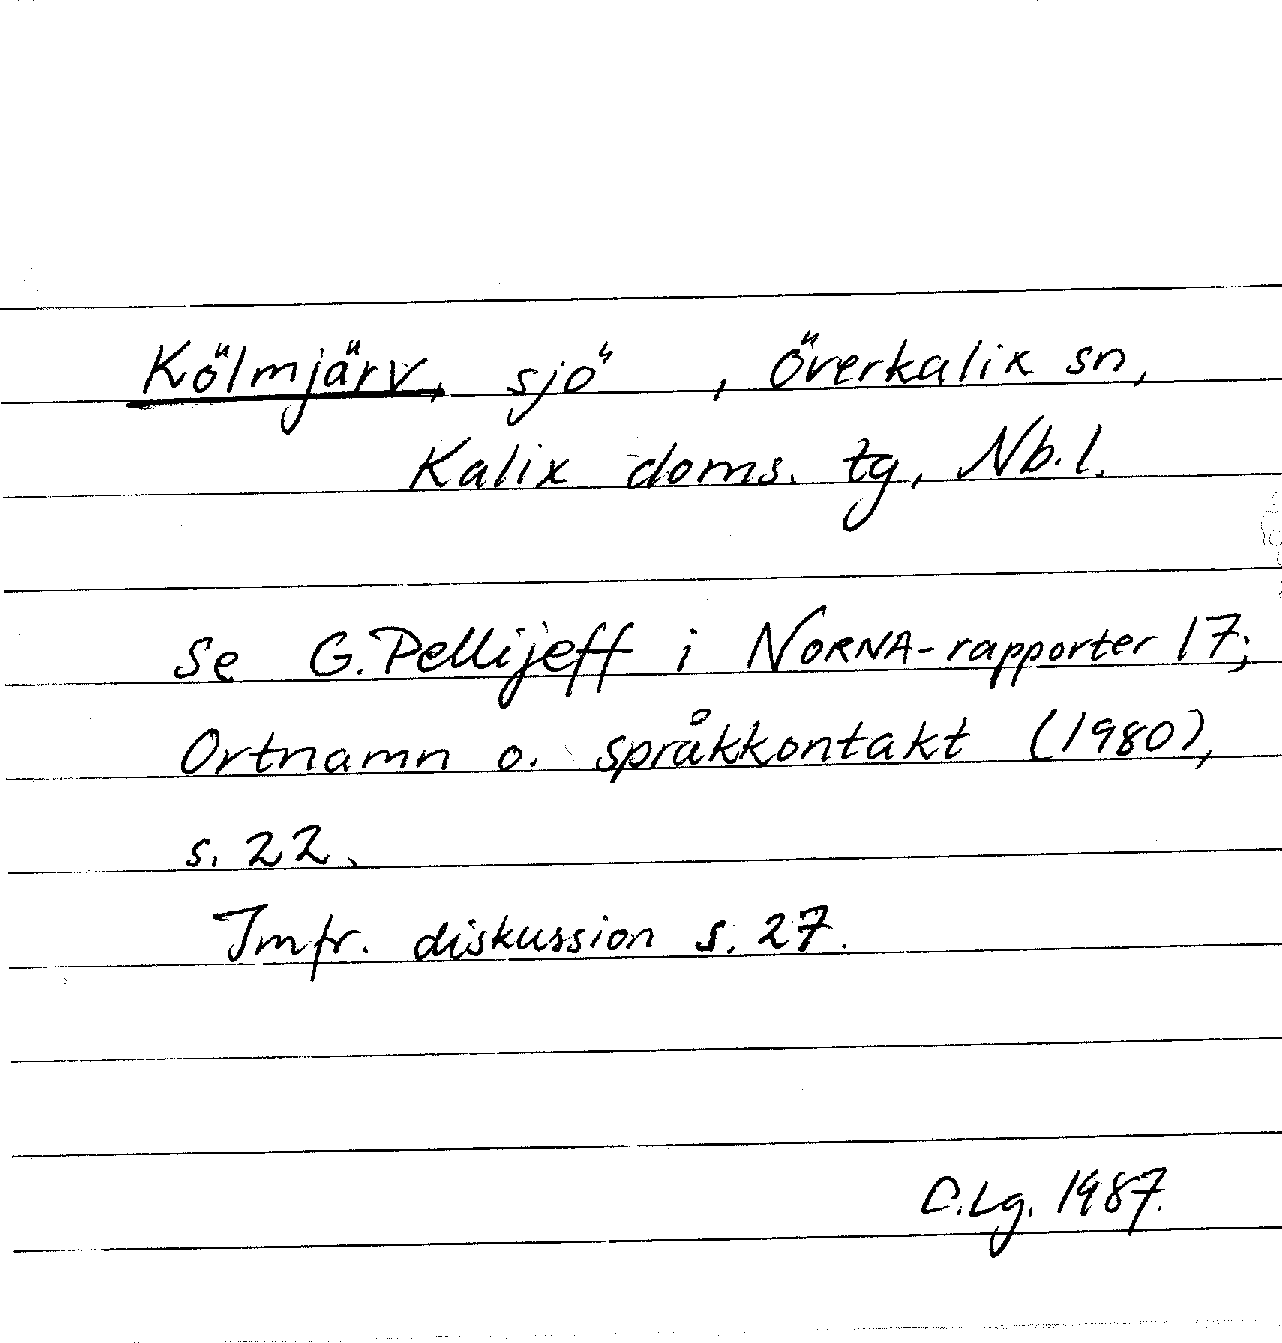 Kölmjärv, sjö , Överkalix sn,
Kalix doms. tg, Nb. l.
Se G. Pellijeff i NORNA-rapporter 17;
Ortnamn o. språkkontakt (1980),
s. 22.
Jmfr. diskussion s. 27.
C. Lg. 1987.